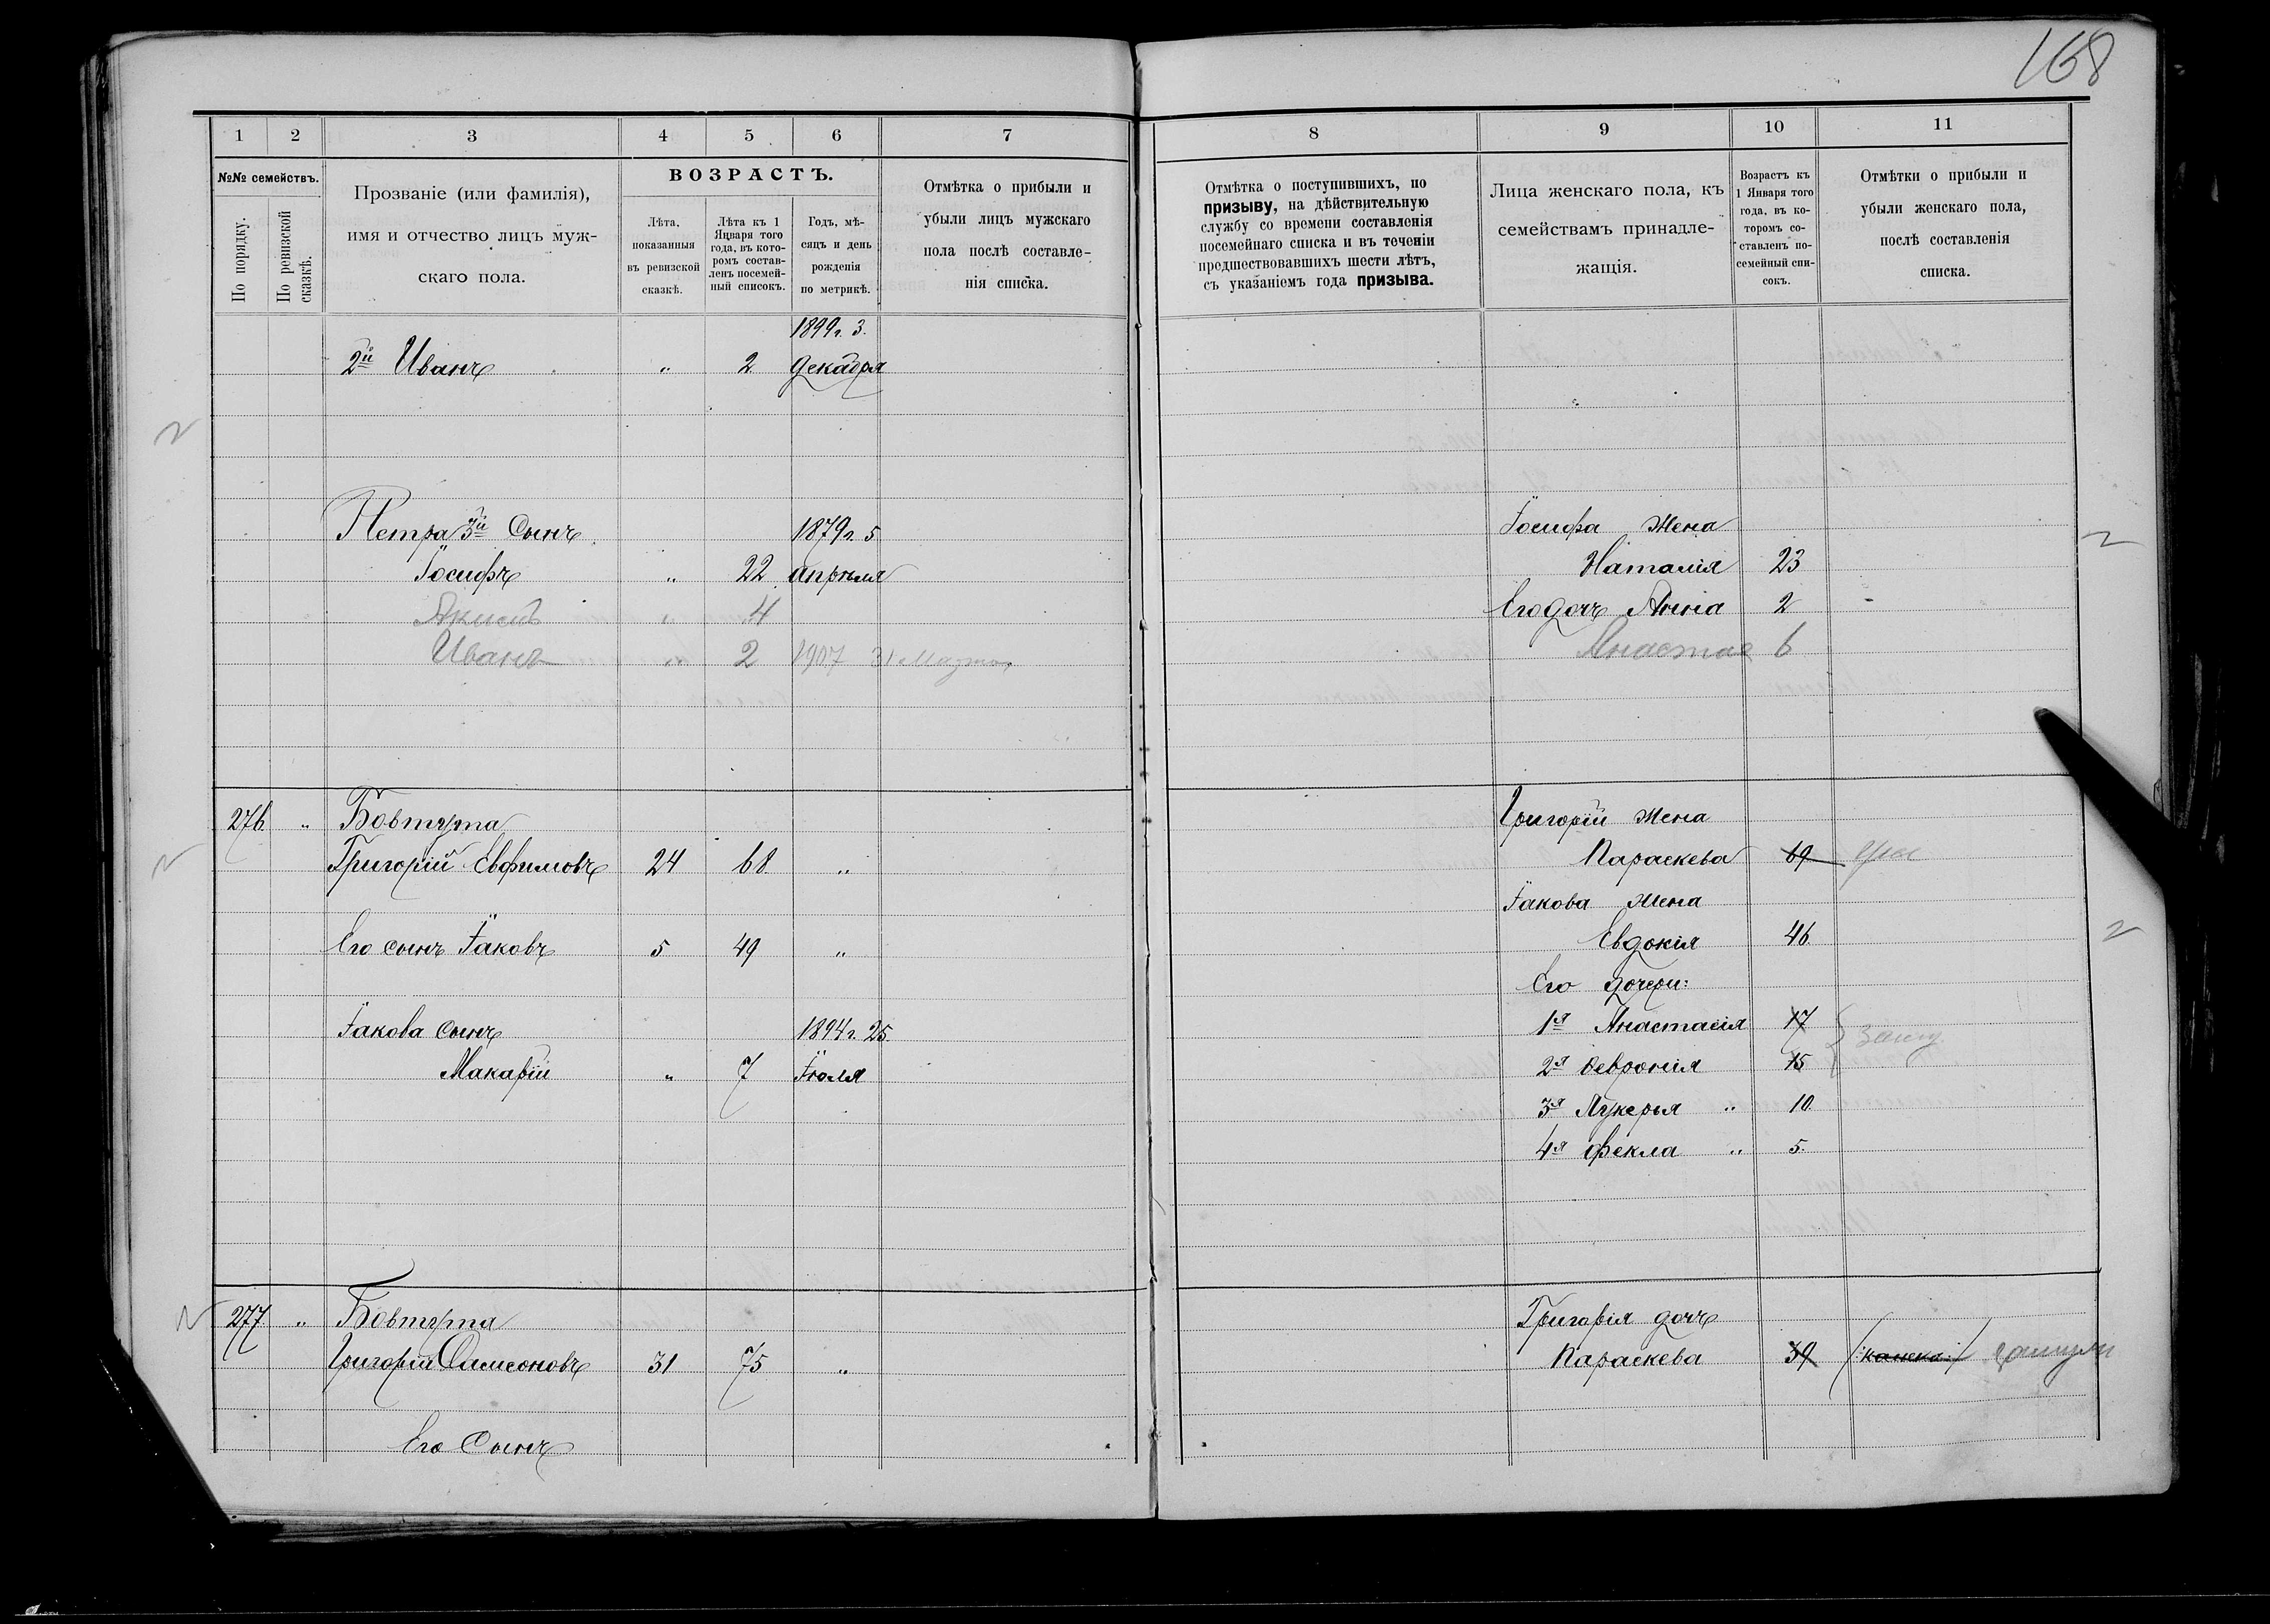 168
1 2 3 4 5 6 7
№№ семействъ.
По порядку.
По ревизской сказкѣ.
Прозваніе (или фамилія),
имя и отчество лицъ муж-
скаго пола.
ВОЗРАСТЪ.
Лѣта,
показанныя
въ ревизской
сказкѣ.
Лѣта къ 1
Января того
года, въ кото-
ромъ состав-
ленъ посемей-
ный списокъ.
Годъ, мѣ-
сяцъ и день
рожденія
по метрикѣ.
Отмѣтка о прибыли и
убыли лицъ мужскаго
пола послѣ составле-
нія списка.
1899 г. 3.
2й Иванъ " 2 Декабря
Петра 3й Сынъ 1879 г. 5
Іосифъ " 22 апрѣля
" 4
Иванъ " 2 1907 31 Марта
276 " Бовтута
Григорій Евфимовъ 24 68 "
Его сынъ Іаковъ 5 49 "
Іакова Сынъ 1894 г. 25
Макарій " 7 Іюля
277 " Бовтута
Григорій Самсоновъ 31 75 "
Его Сынъ
8 9 10 11
Отмѣтка о поступившихъ, по
призыву, на дѣйствительную
службу со времени составленія
посемейнаго списка и въ теченіи
предшествовавшихъ шести лѣтъ,
съ указаніемъ года призыва.
Лица женскаго пола, къ
семействамъ принадле-
жащія.
Возрастъ къ
1 Января того
года, въ ко-
торомъ со-
ставленъ по-
семейный спи-
сокъ.
Отмѣтки о прибыли и
убыли женскаго пола,
послѣ составленія
списка.
Іосифа Жена
Наталія 23
Его дочь Анна 2
6
Григорій жена
Параскева 69
Іакова жена
Евдокія 46
Его дочери:
1я Анастасія 17
2я Февронія 15
3я Лукерья " 10
4я Фекла " 5.
Григорія дочь
Параскева 39